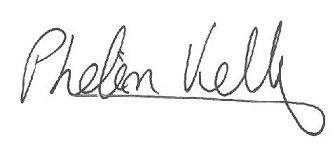 Phelim Kelly